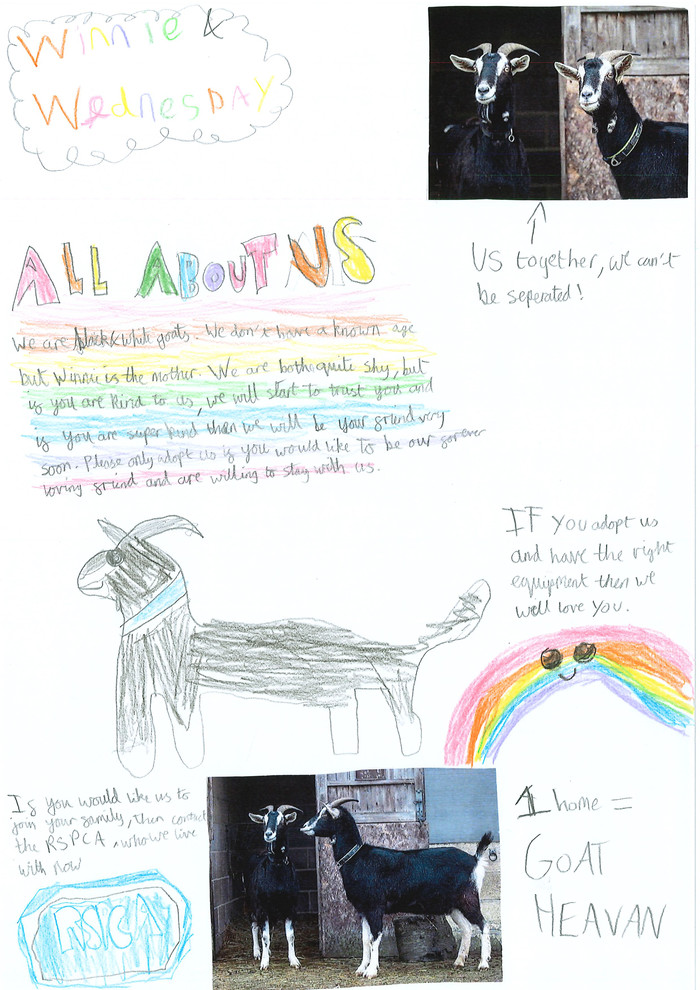 Winnie &
WednesDAY
US together, we can't
be seperated!
ALL ABOUT US
We are black & white goats. We don't have a known age
but Winnie is the mother. We are both quite shy, but
if you are kind to us, we will start to trust you and
if you are super kind then we will be your friend very
soon. Please only adopt us if you would like to be our forever
loving friend and are willing to stay with us.
IF you adopt us
and have the right
equipment then we
will love you.
If you would like us to
join your family, then contact
the RSPCA, who we live
with now
RSPCA
1 home =
GOAT
HEAVAN